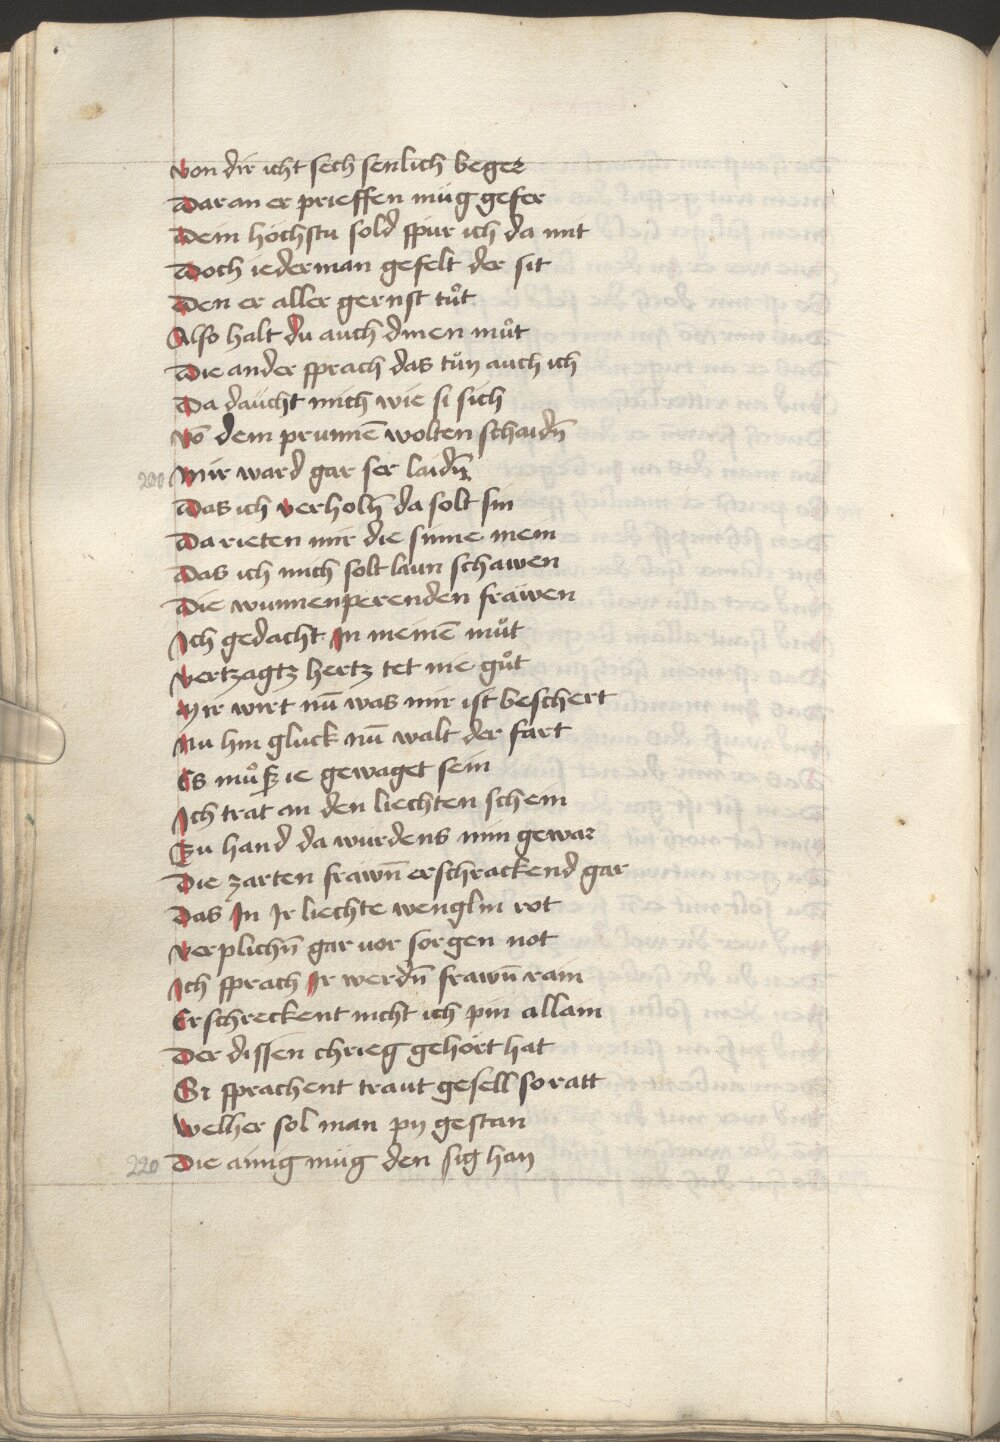 Von dir icht sech senlich beger
Daran er prieffen müg gefer
Dein höchstu sold spür ich da mit
Doch iederman gefelt der sit
Den er aller gernst tůt
Also halt du auch dinen můt
Die ander sprach das tůn auch ich
Da daücht mich wie si sich
Vō dem prunnē wolten schaidn̄
200 Mir ward gar ser laidn̄
Das ich verholn̄ da solt sin
Da rieten mir die sinne mein
Das ich mich solt laun schawen
Die wunnenperenden frawen
Ich gedacht In meinē můt
Vertzagtz hertz tet nie gůt
Mir wirt nū was mir ist beschert
Nu hin gluck nū walt der fart
Es můß ie gewaget sein
Ich trat an den liechten schein
Zu hand da wurdens min gewar
Die zarten frawn̄ erschrackend gar
Das In Ir liechte wenglin rot
Verplichn̄ gar vor sorgen not
Ich sprach Ir werdn̄ frawn̄ rain
Erschreckent nicht ich pin allain
Der dissen chrieg gehört hat
Si sprachent traut gesell so ratt
Welher sol man py gestan
220 Die ainig müg den sig han